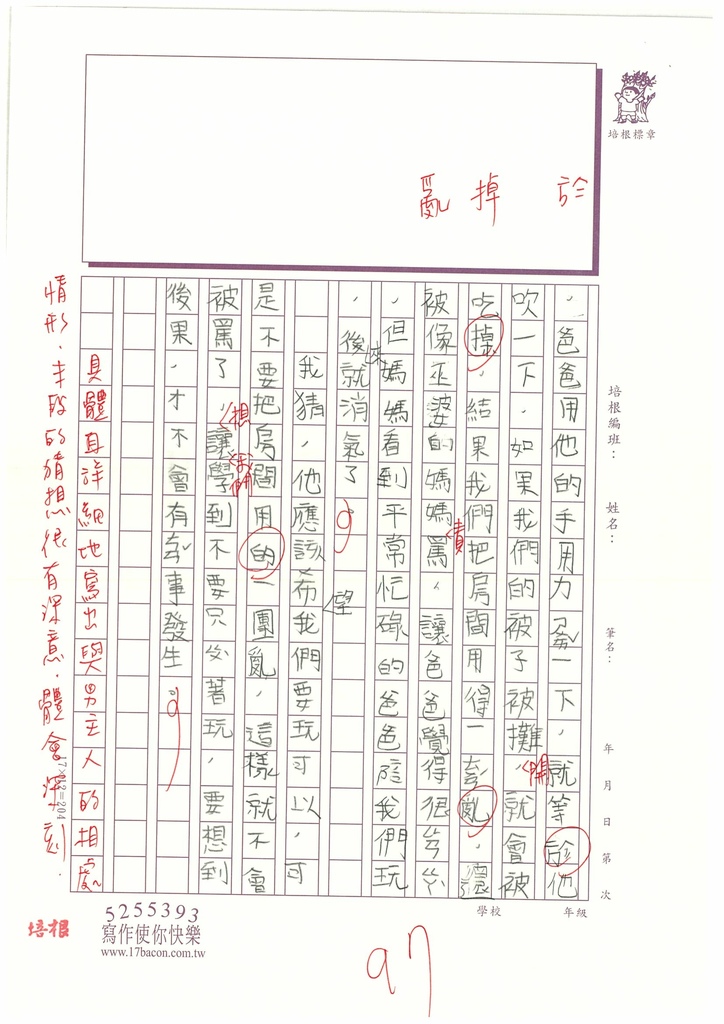 亂 掉 於
培根標章
培根編班：
姓名：
筆名：
年 月 日 第 次
，爸爸用他的手用力ㄋㄧㄝ一下，就等於他
吹一下，如果我們的被子被攤開，就會被
吃掉，結果我們把房間用得一ㄊㄨㄢˊ亂，還
被像巫婆的媽媽責罵，讓爸爸覺得很
，但媽媽看到平常忙碌的爸爸陪我們玩
，後來就消氣了。
我猜，他應該希望我們要玩可以，可
是不要把房間用的一團亂，這樣就不會
被罵了，想讓我們學到不要只ㄍㄨˋ著玩，要想到
後果，才不會有ㄕˋ事發生。
具體且詳細地寫出與男主人的相處
情形，末段的猜想很有深意，體會深刻。
17×12=204
學校
年級
培根
5255393
寫作使你快樂
www.17bacon.com.tw
97